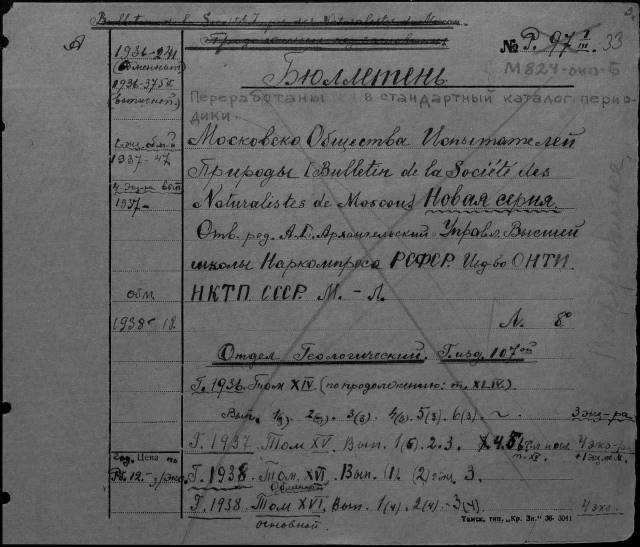 Bulletin de la Société Imp. des Naturalistes de Moscou
А
№ Р. 97 I/III 33
1936-
(обменный)
Бюллетень
М824-опо-Б
1936-37
(выписной)
Переработаны в стандартный каталог перио-
дики.
Московско Общества Испытателей
1937-
Природы [Bulletin de la Société des
1937-
Naturalistes de Moscou] Новая серия
Отв. ред. А.Д. Архангельский Управл. Высшей
школы Наркомпроса РСФСР. Изд-во ОНТИ
обм. НКТП СССР. М. - Л.
1938- Л. 8°
Отдел Геологический. Г. изд. 107ой
Г. 1936. Том XIV. (по продолжению: т. XLIV.)
Вып. 1(3). 2(3). 3(3). 4(3). 5(3). 6(3). ~. 3 экз-ра
Г. 1937 Том XV. Вып. 1(5). 2. 3. 4. 5. 4 экз-ра
год. Цена по
Г. 1938 Том. XVI. Вып. 1. (2) экз 3.
Рб. 12.-
Обменный
Г. 1938. Том XVI. Вып. 1(4). 2(4) - 3(4) 4 экз.
основной.
Томск, тип. „Кр. Зн." 36-3041